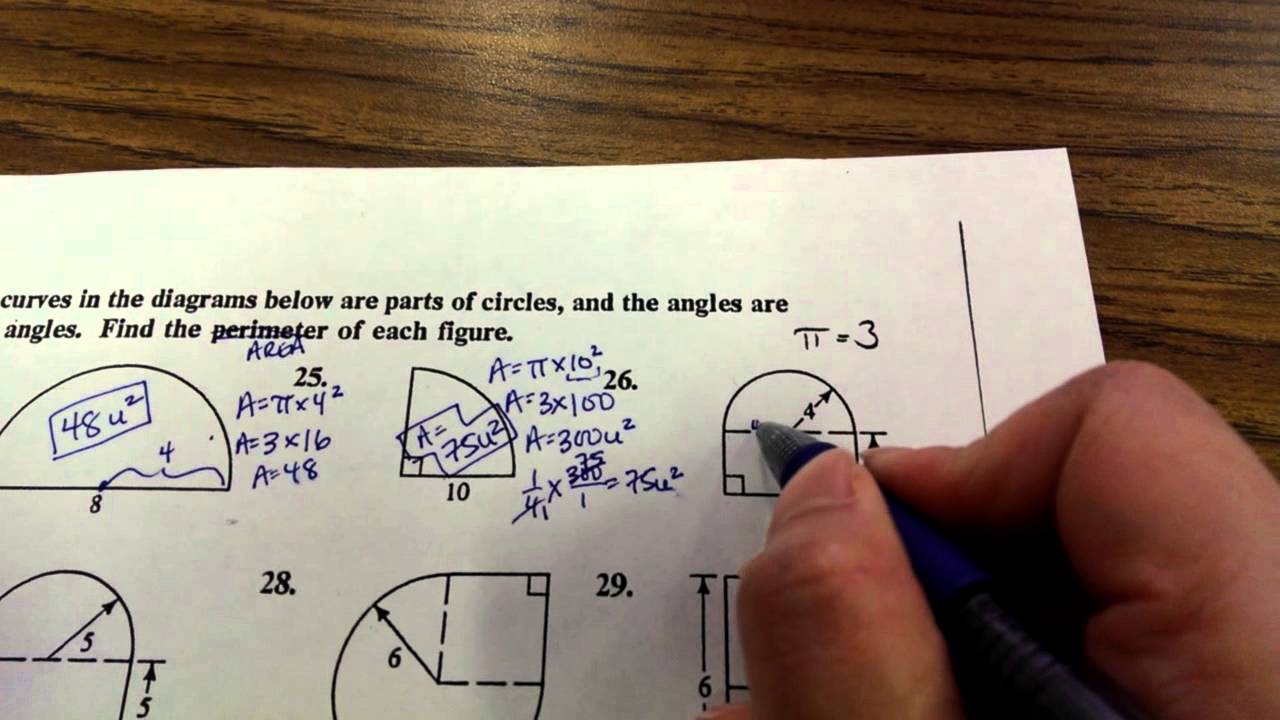 curves in the diagrams below are parts of circles, and the angles are
angles. Find the perimeter of each figure.
AREA
π = 3
48u²
4
8
25.
A=π×4²
A=3×16
A=48
A=
75u²
10
A=π×10²
A=3×100
A=300u²
1/4 1 × 300 75/1 = 75u²
26.
4
5
5
28.
6
29.
6